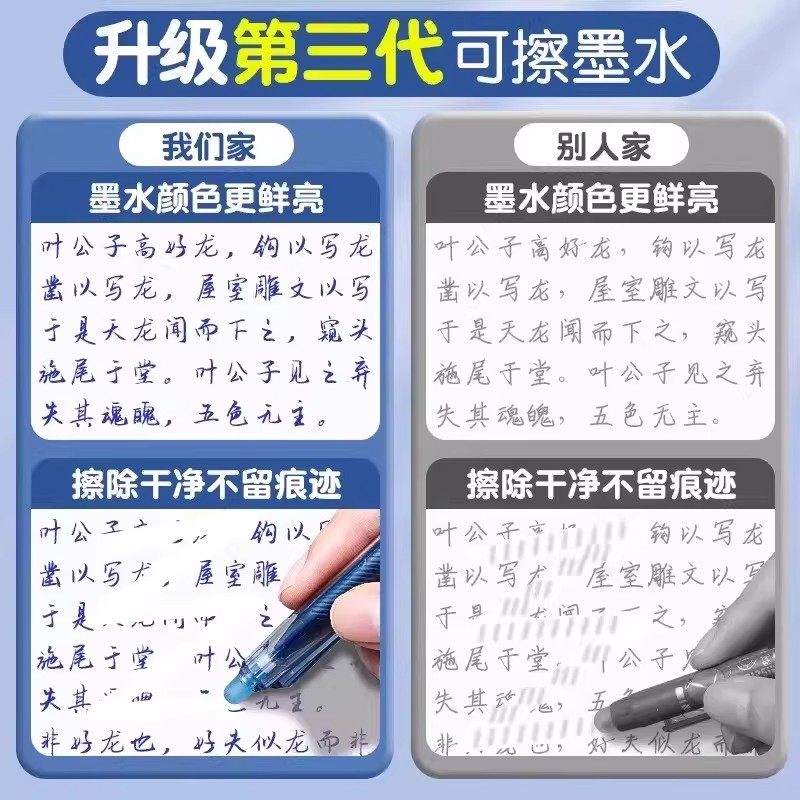 升级第三代可擦墨水
我们家
墨水颜色更鲜亮
叶公子高好龙，钩以写龙
凿以写龙，屋室雕文以写
于是天龙闻而下之，窥头
施尾于堂。叶公子见之弃
失其魂魄，五色无主。
擦除干净不留痕迹
叶公子 钩以写
凿以写龙，屋室雕
于是 之
施尾于堂 叶公
失其 色无主。
非好龙也，好夫似龙而非
别人家
墨水颜色更鲜亮
叶公子高好龙，钩以写龙
凿以写龙，屋室雕文以写
于是天龙闻而下之，窥头
施尾于堂。叶公子见之弃
失其魂魄，五色无主。
擦除干净不留痕迹
叶公子高 钩以写龙
凿以写龙 屋室雕文以写
于是 龙闻 之，窥
施尾于堂 公子见
失其魂 五
非 也，好夫似龙而